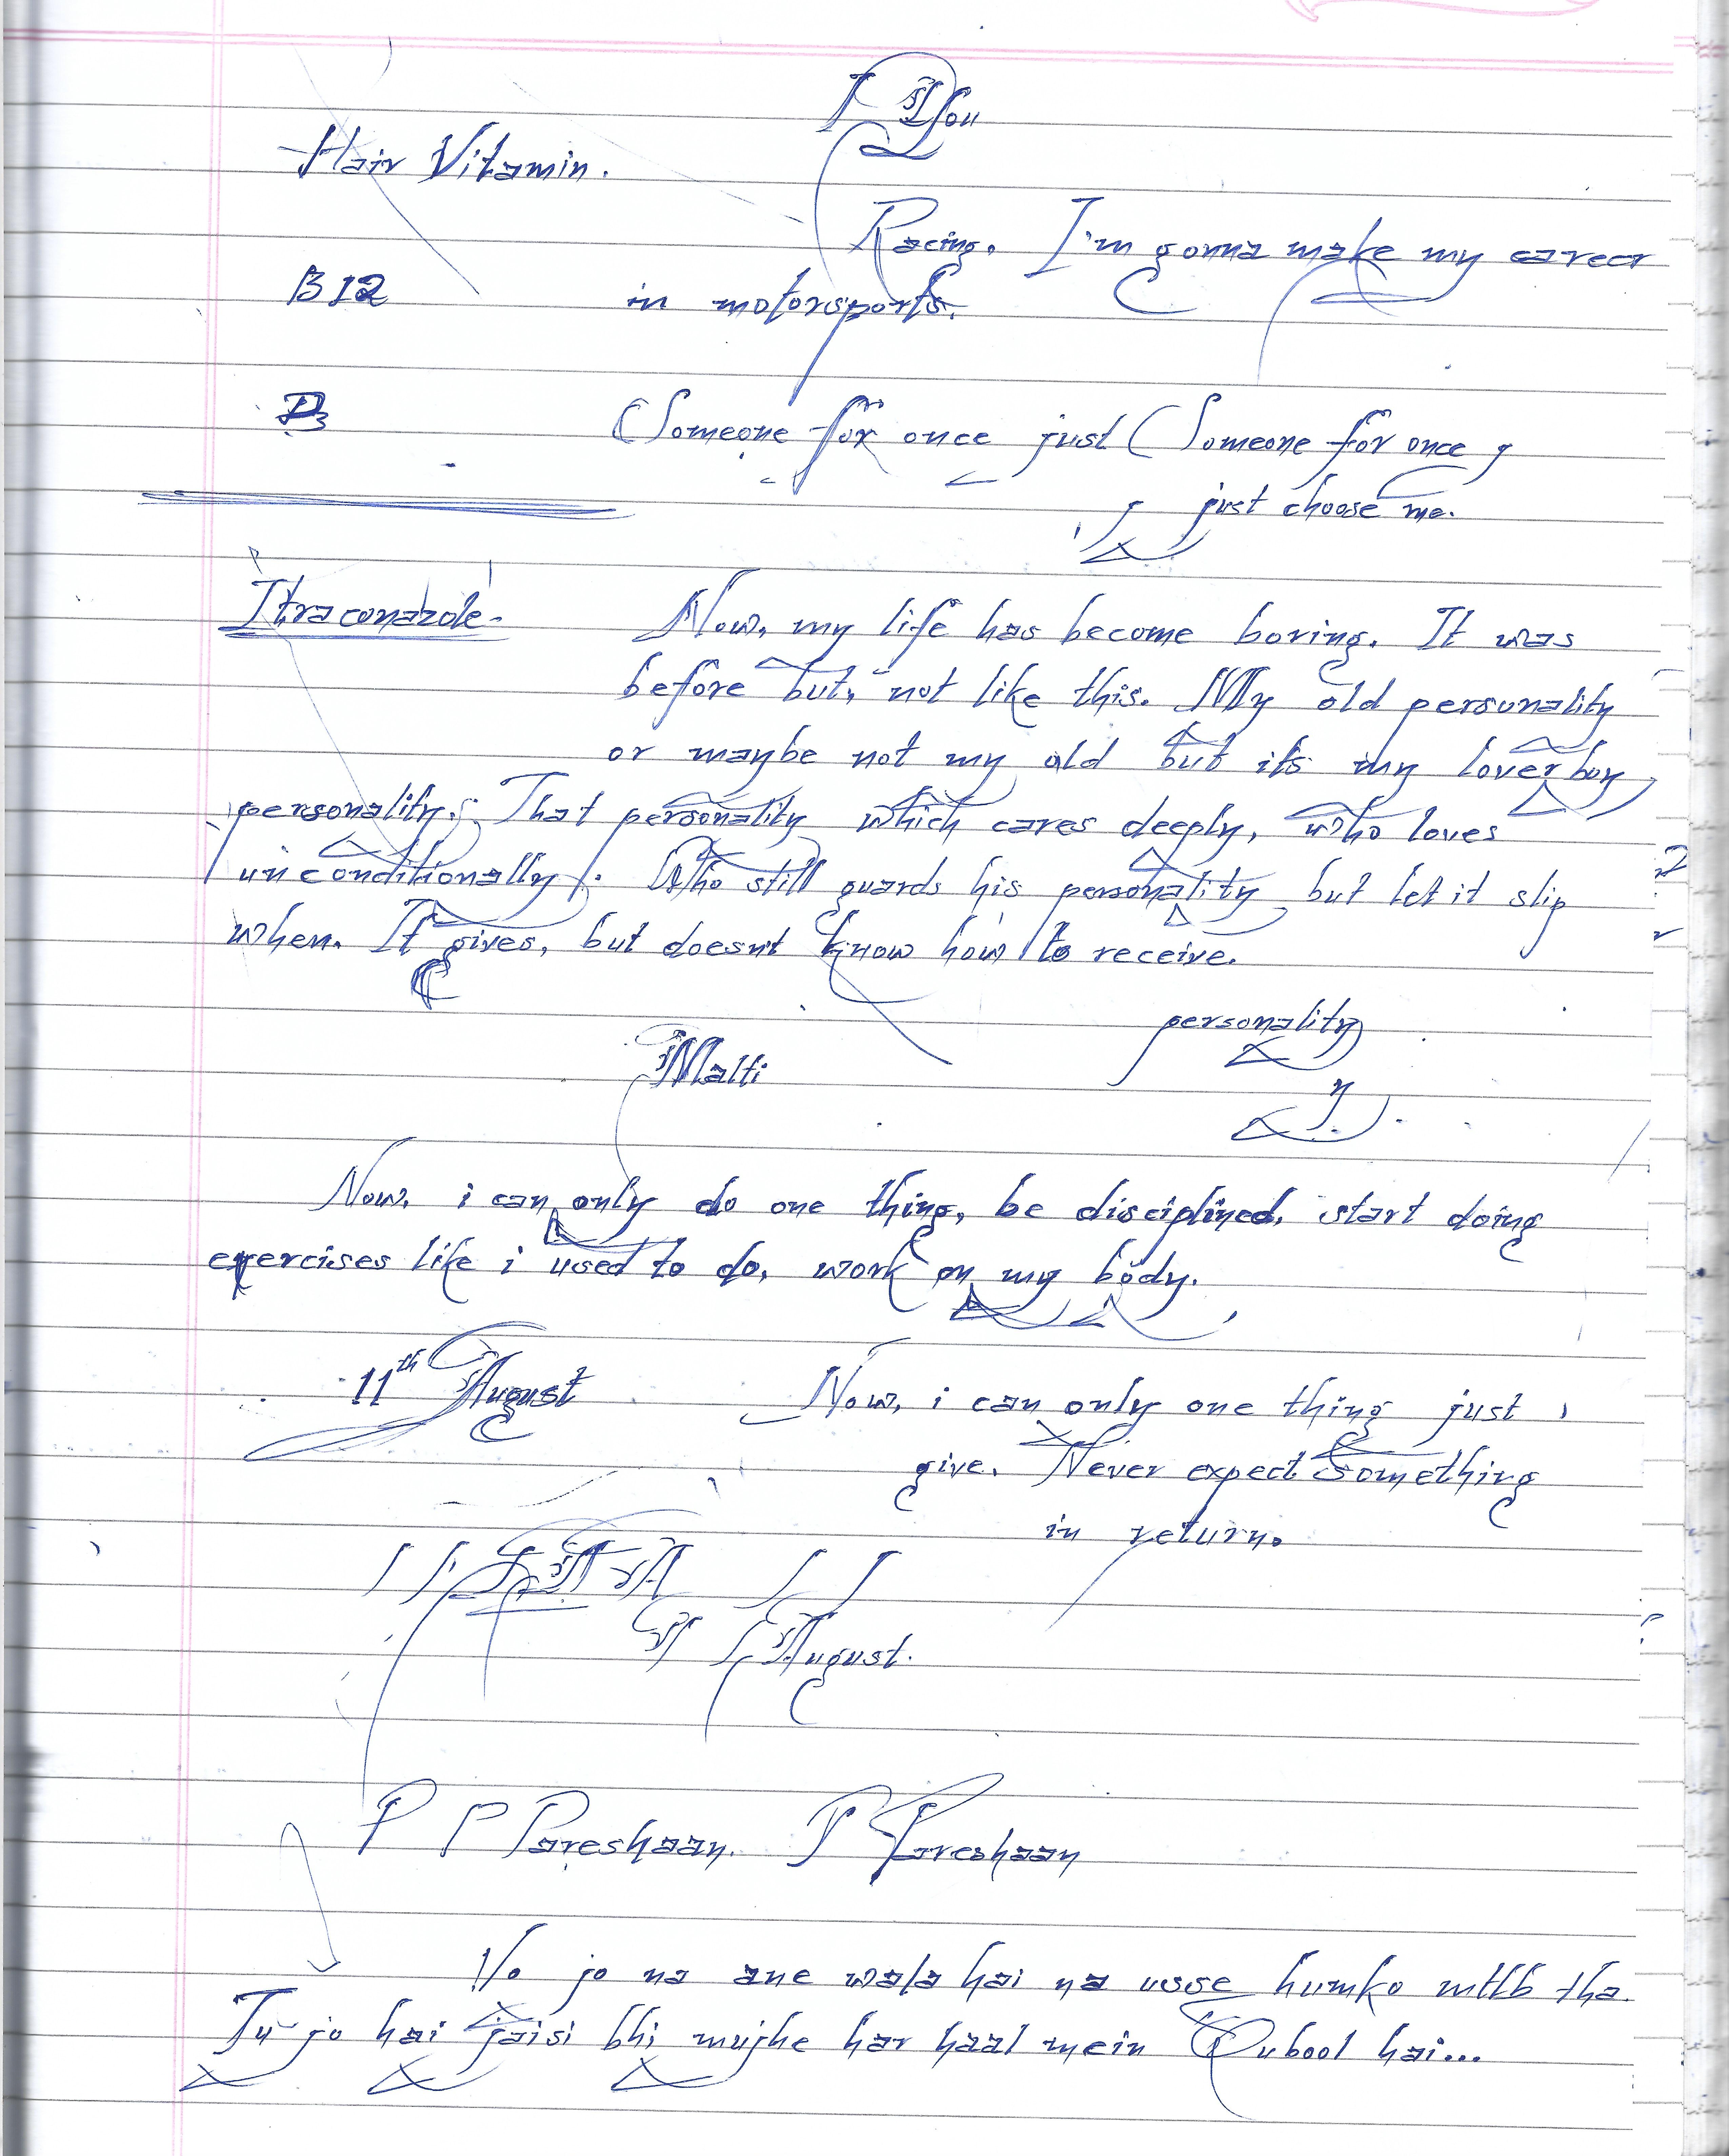 I You
Hair Vitamin.
Racing. I'm gonna make my career
B12 in motorsports.
Someone for once just (Someone for once
just choose me.
Itraconazole Now, my life has become boring. It was
before but, not like this. My old personality
or maybe not my old but its my lover boy
personality. That personality which cares deeply, who loves
unconditionally. Who still guards his personality but let it slip
when. It gives, but doesn't know how to receive.
personality
Malti
y
Now, i can only do one thing, be disciplined, start doing
exercises like i used to do, work on my body.
11th August Now, i can only one thing just
give. Never expect something
in return.
August.
P P Pareshaan. P Pareshaan
Vo jo na ane wala hai na usse humko mtlb tha.
Tu jo hai jaisi bhi mujhe har haal mein Qubool hai...